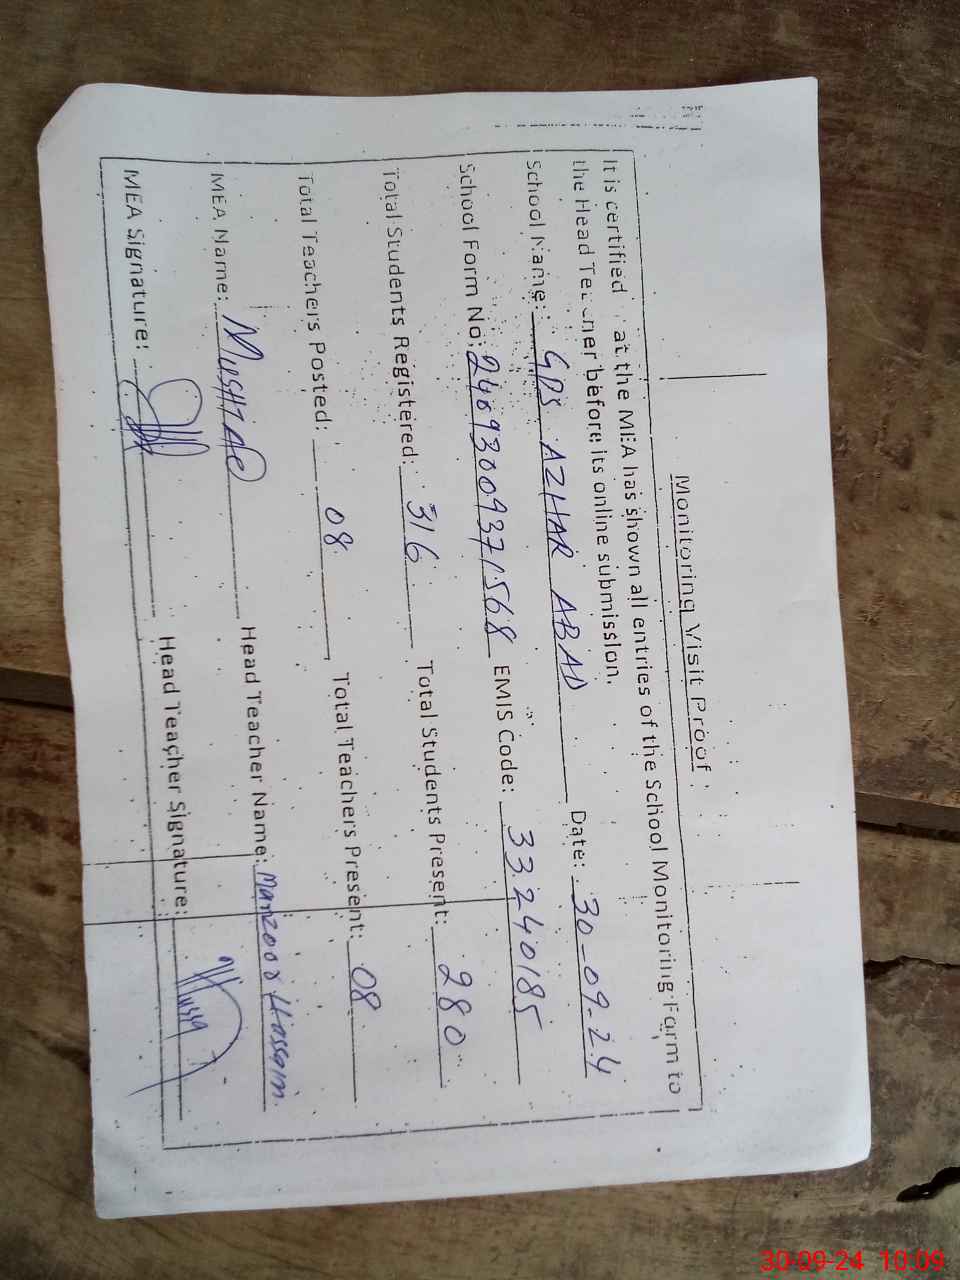 Monitoring Visit Proof
It is certified at the MEA has shown all entries of the School Monitoring Form to
the Head Teacher before its online submission.
School Name: GPS AZHAR ABAD Date: 30-09-24
School Form No: 24093009371568 EMIS Code: 33240185
Total Students Registered: 316 Total Students Present: 280
Total Teachers Posted: 08 Total Teachers Present: 08
MEA Name: MUSHTAQ Head Teacher Name: Manzoor Hassain
MEA Signature: Head Teacher Signature:
30-09-24 10:09